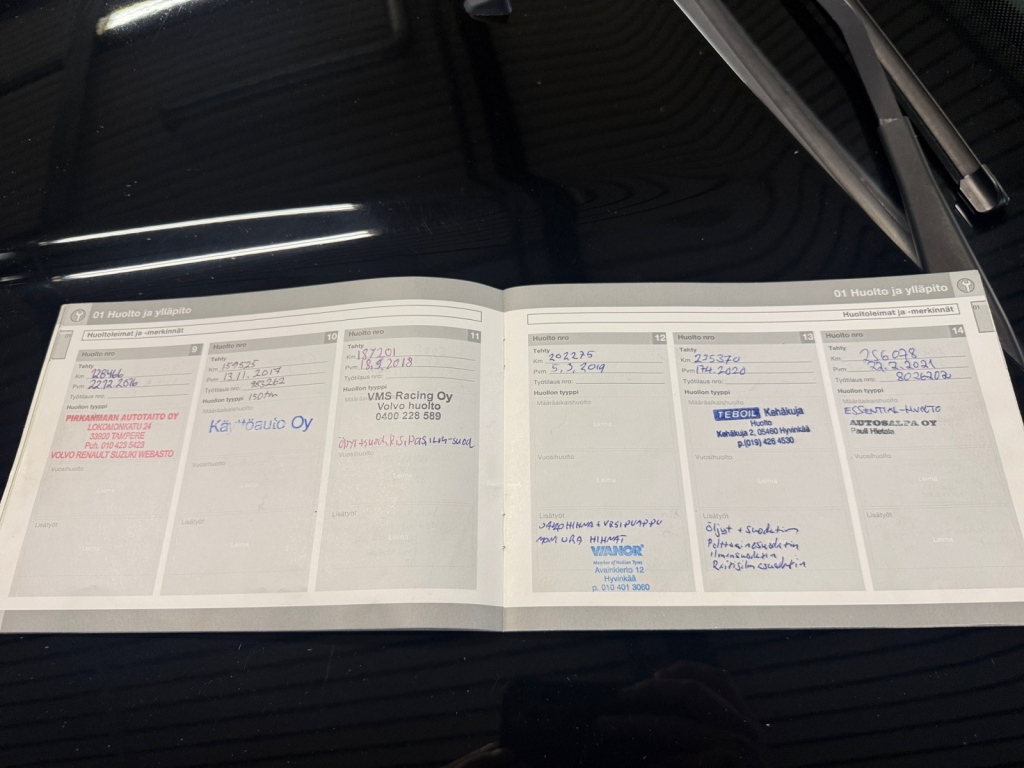 01 Huolto ja ylläpito
Huoltoleimat ja -merkinnät
Huolto nro 9
Tehty
Km 128466
Pvm 22.12.2016
Työtilaus nro:
Huollon tyyppi
PIRKANMAAN AUTOTAITO OY
LOKOMONKATU 24
33900 TAMPERE
Puh. 010 423 5423
VOLVO RENAULT SUZUKI WEBASTO
Vuosihuolto
Leima
Lisätyöt
Leima
Huolto nro 10
Tehty
Km 159525
Pvm 13.11.2017
Työtilaus nro:
Huollon tyyppi 150tkm
Määräaikaishuolto
Oy
Vuosihuolto
Leima
Lisätyöt
Leima
Huolto nro 11
Tehty
Km 187201
Pvm 18.9.2018
Työtilaus nro:
Huollon tyyppi
VMS Racing Oy
Volvo huolto
0400 228 589
Vuosihuolto
Leima
Lisätyöt
Leima
01 Huolto ja ylläpito
Huoltoleimat ja -merkinnät
01
Huolto nro 12
Tehty
Km 202275
Pvm 5.3.2019
Työtilaus nro:
Huollon tyyppi
Määräaikaishuolto
Leima
Vuosihuolto
Leima
Lisätyöt
JAKOHIHNA + VESIPUMPPU
MONIURA HIHNAT
VIANOR
Member of Nokian Tyres
Avainkierto 12
Hyvinkää
p. 010 401 3060
Huolto nro 13
Tehty
Km 235370
Pvm 17.4.2020
Työtilaus nro:
Huollon tyyppi
Määräaikaishuolto
TEBOIL Kehäkuja
Huolto
Kehäkuja 2, 05460 Hyvinkää
p.(019) 426 4530
Vuosihuolto
Leima
Lisätyöt
Öljyt + suodatin
Polttoainesuodatin
ilmansuodatin
Raitisilmasuodatin
Huolto nro 14
Tehty
Km 256078
Pvm 22.2.2021
Työtilaus nro: 8026202
Huollon tyyppi
Määräaikaishuolto
ESSENTIAL-HUOLTO
AUTOSALPA OY
Pauli Hietala
Vuosihuolto
Leima
Lisätyöt
Leima